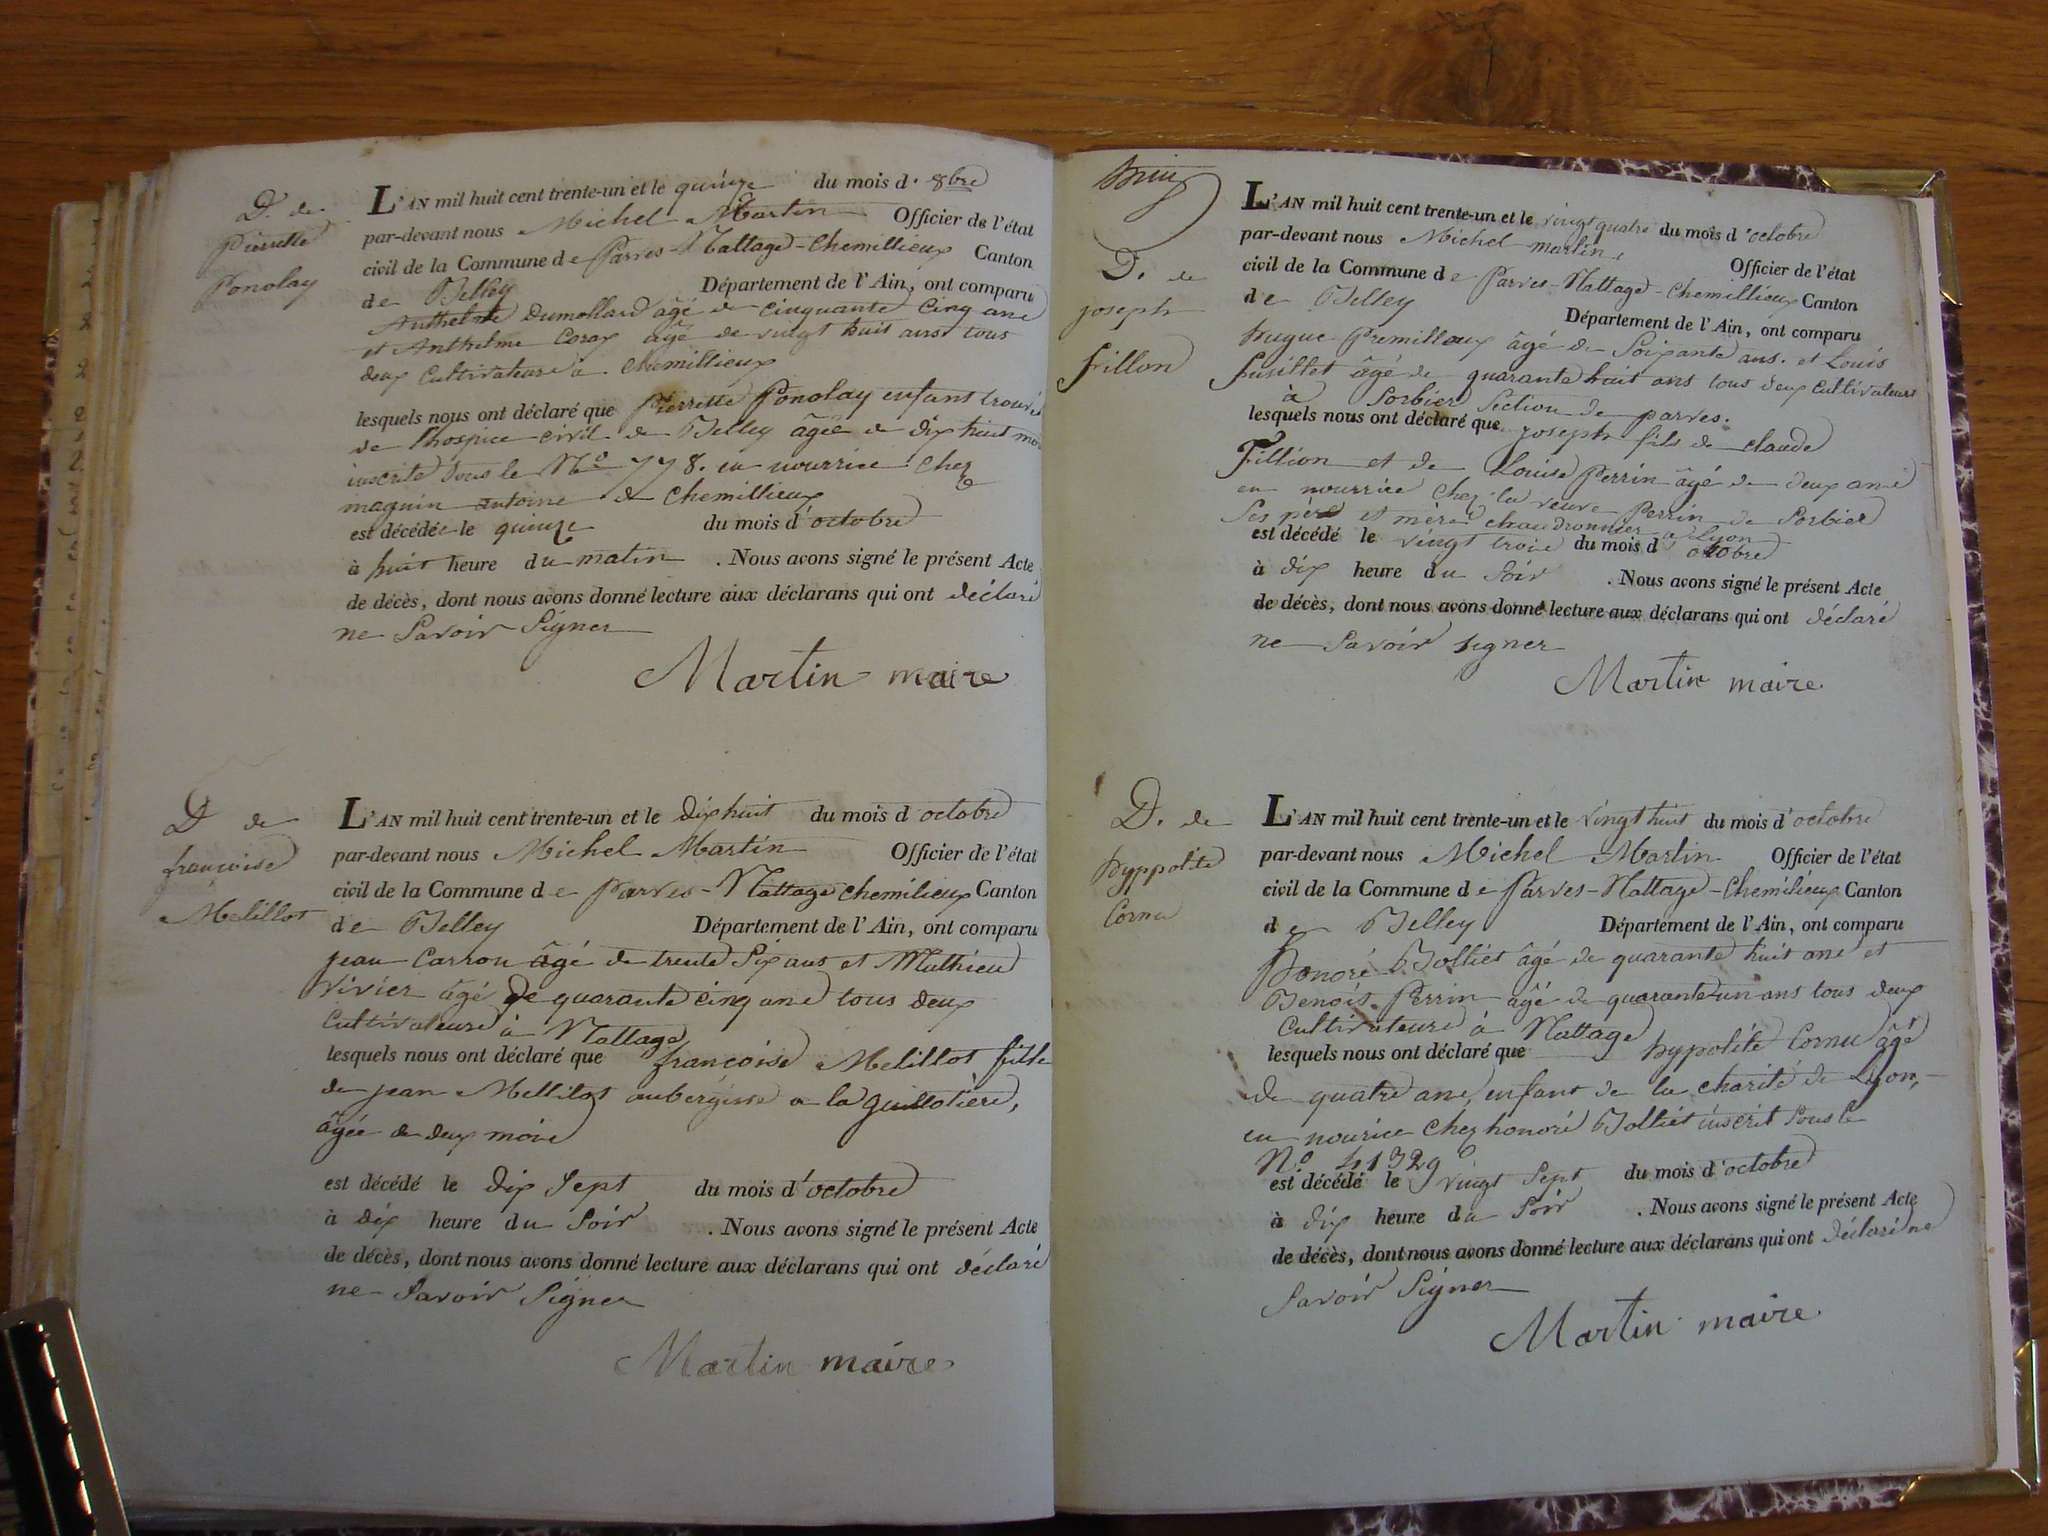 D. de
Pierrette
Ponolay
L'AN mil huit cent trente-un et le quinze du mois d. 8bre
par-devant nous Michel Martin Officier de l'état
civil de la Commune de Parves-Nattage-Chemillieux Canton
de Belley Département de l'Ain, ont comparu
Anthelme Dumollard âgé de cinquante cinq ans
et Anthelme Coray âgé de vingt huit ans tous
deux Cultivateurs à Chemillieux
lesquels nous ont déclaré que Pierrette Ponolay enfant trouvé
de l'hospice civil de Belley âgée de dix huit mois
inscrite sous le No 778. en nourrice chez
maguin antoine de Chemillieux
est décédée le quinze du mois d'octobre
à huit heure du matin . Nous avons signé le présent Acte
de décès, dont nous avons donné lecture aux déclarans qui ont déclaré
ne Savoir Signer
Martin maire
D de
françoise
Melillot
L'AN mil huit cent trente-un et le dix huit du mois d'octobre
par-devant nous Michel Martin Officier de l'état
civil de la Commune de Parves-Nattage chemilieux Canton
de Belley Département de l'Ain, ont comparu
jean Carron âgé de trente Six ans et Mathieu
Vivier âgé de quarante cinq ans tous deux
Cultivateurs à Nattage
lesquels nous ont déclaré que françoise Melillot fille
de jean Mellilot aubergiste a la guillotière,
âgée de deux mois
est décédé le dix Sept du mois d'octobre
à dix heure du Soir . Nous avons signé le présent Acte
de décès, dont nous avons donné lecture aux déclarans qui ont déclaré
ne Savoir Signer
Martin maire
D. de
joseph
fillon
L'AN mil huit cent trente-un et le vingt quatre du mois d'octobre
par-devant nous Michel martin Officier de l'état
civil de la Commune de Parves-Nattage-Chemillieux Canton
de Belley Département de l'Ain, ont comparu
hugue Premilloux âgé de Soixante ans. et Louis
fusillet âgé de quarante huit ans tous deux cultivateurs
à Sorbier Section de parves.
lesquels nous ont déclaré que joseph fils de claude
Fillion et de Louise Perrin âgé de deux ans
en nourrice chez la veuve Perrin de Sorbier
Ses père et mère chaudronnier a Lyon
est décédé le vingt trois du mois d'octobre
à dix heure du Soir . Nous avons signé le présent Acte
de décès, dont nous avons donné lecture aux déclarans qui ont déclaré
ne Savoir signer
Martin maire
D. de
hyppolite
Cornu
L'AN mil huit cent trente-un et le vingt huit du mois d'octobre
par-devant nous Michel Martin Officier de l'état
civil de la Commune de Parves-Nattage-Chemilieux Canton
de Belley Département de l'Ain, ont comparu
honoré Bolliet âgé de quarante huit ans et
Benoit Perrin âgé de quarante-un ans tous deux
Cultivateurs à Nattage
lesquels nous ont déclaré que hypolite Cornu âgé
de quatre ans, enfant de la charité de Lyon,
en nourice chez honoré Bolliet inscrit Sous le
No 41329
est décédé le vingt Sept du mois d'octobre
à dix heure du Soir . Nous avons signé le présent Acte
de décès, dont nous avons donné lecture aux déclarans qui ont déclaré ne
Savoir Signer
Martin maire